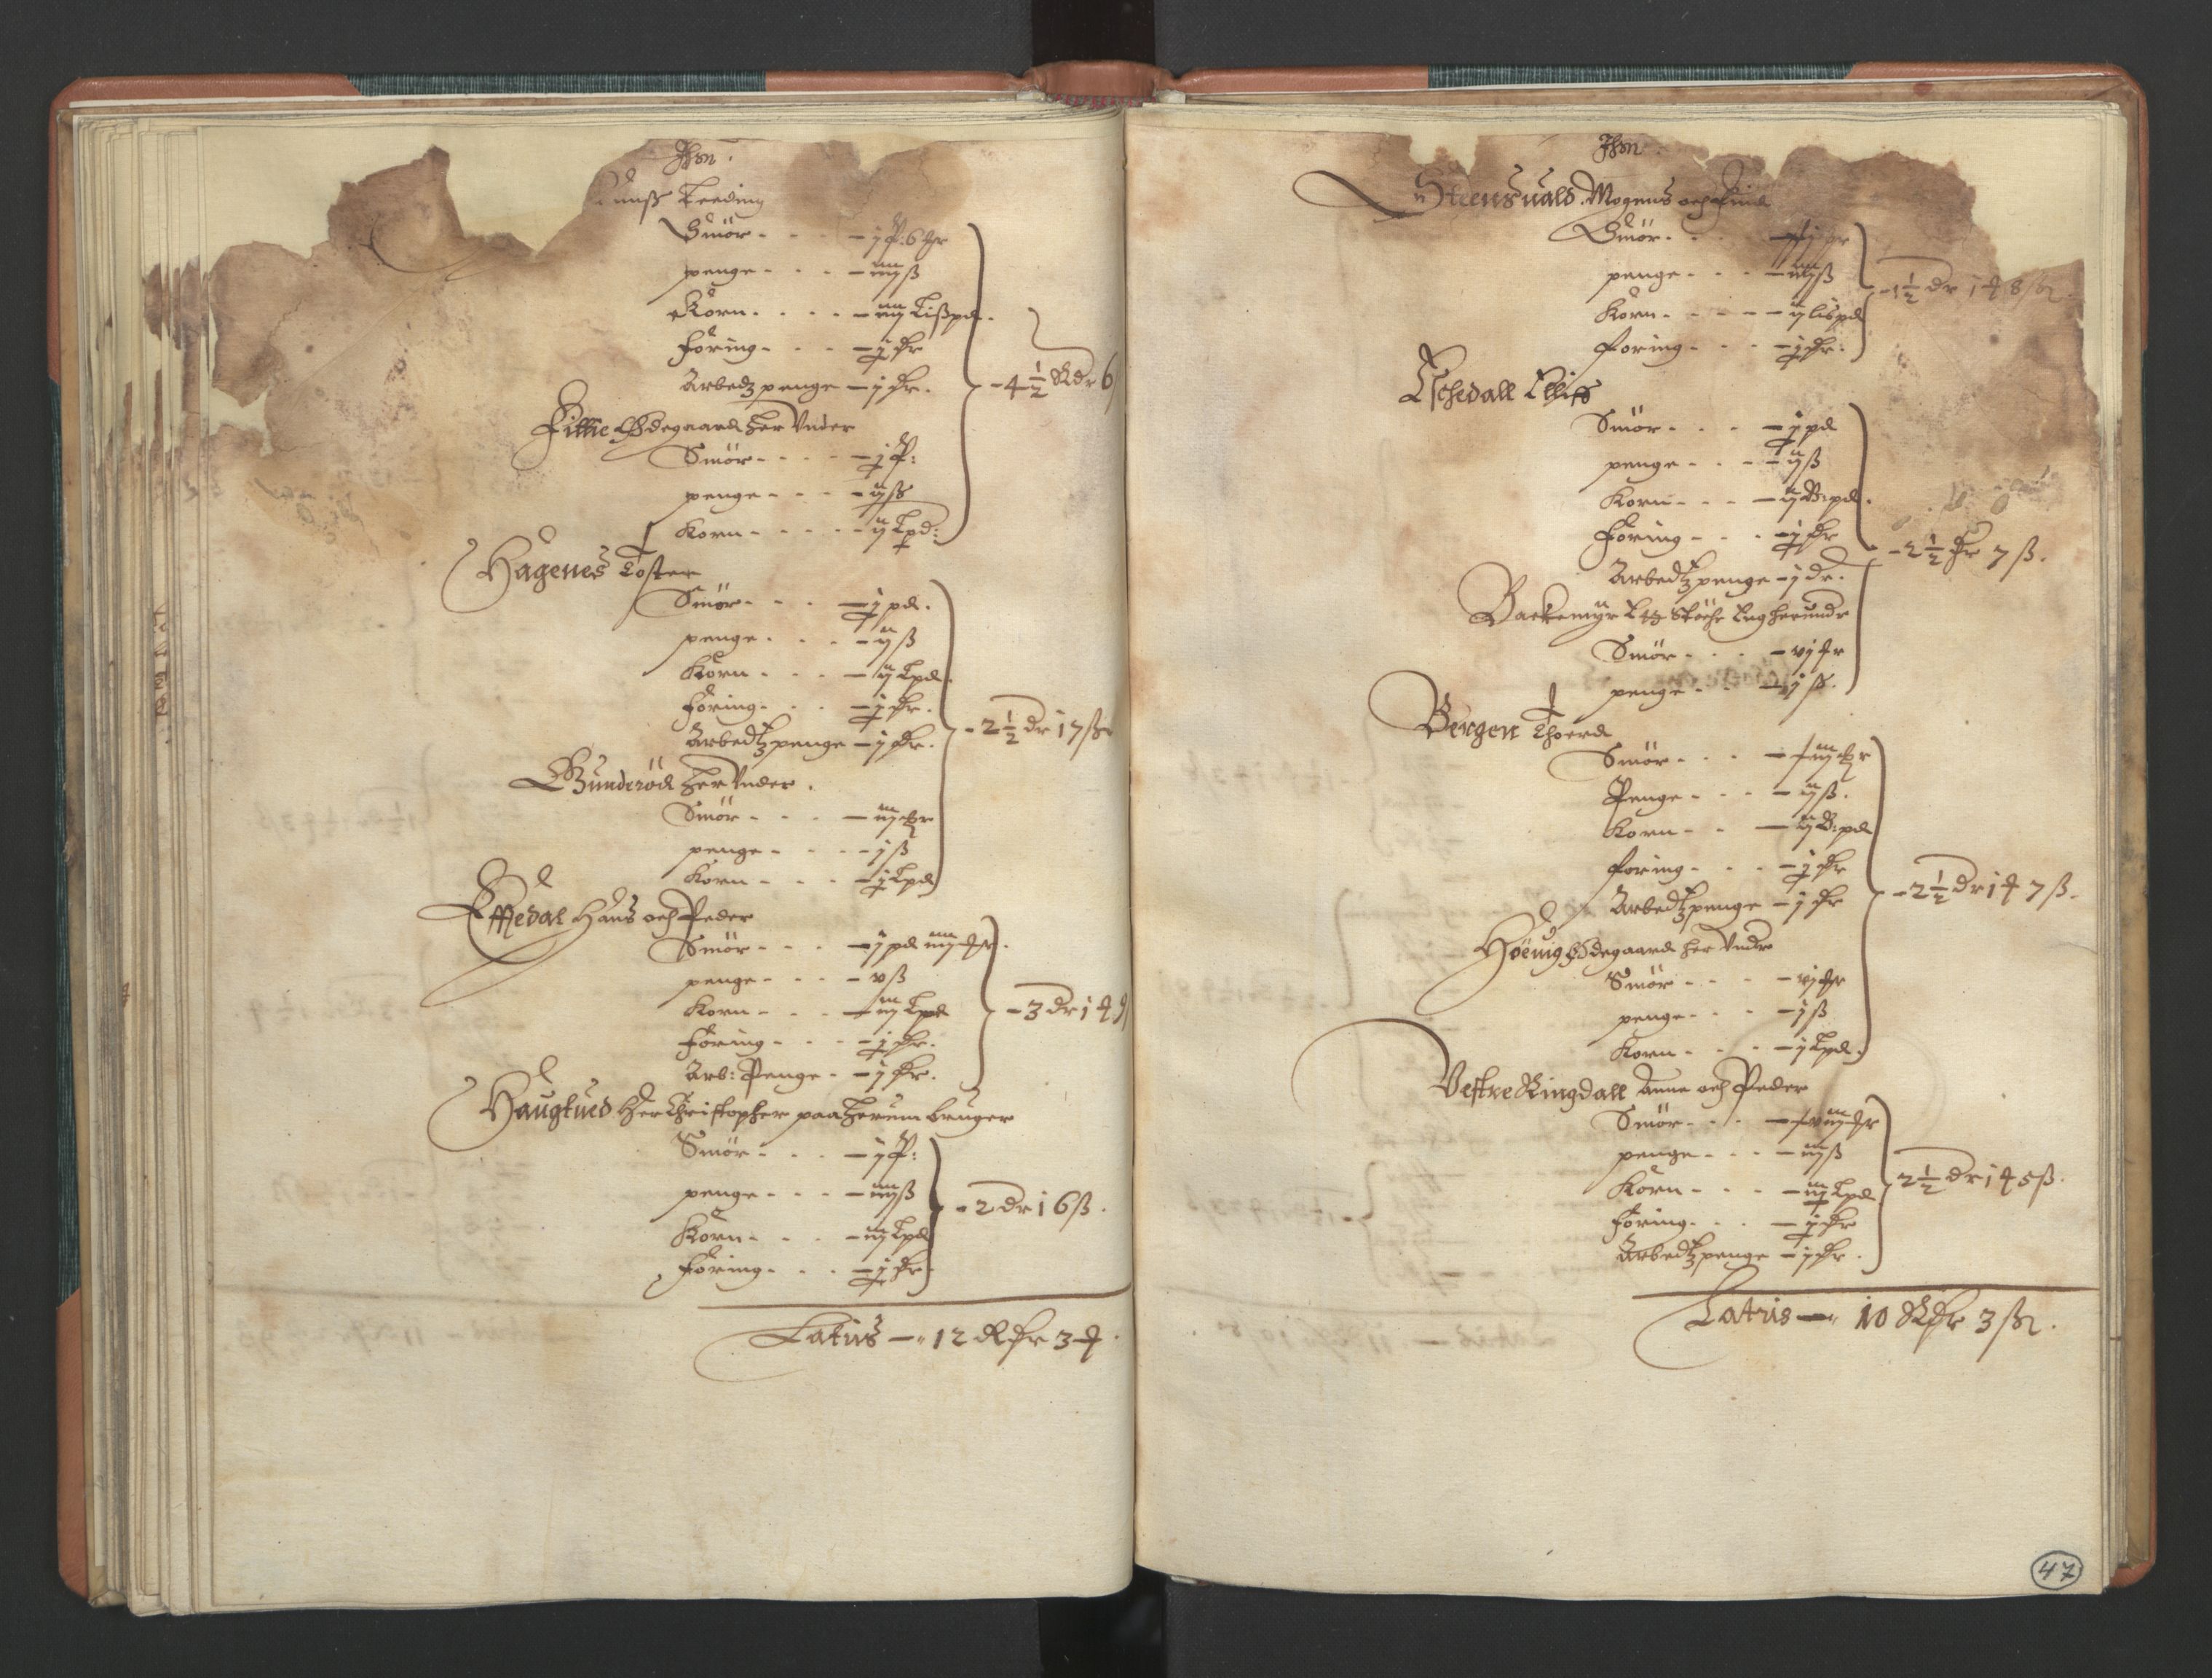 Ihm.
Leeding
Smör - - - j ℔: 6 ₥r
penge - - - iiij ß
Korn - - - iiij Lißpd.
Föring - - - j dr
Arbedz penge - j dr.
- 4 ½ Rdr 6
Fillie Ødegaard her Under
Smör - - - j ℔:
penge - - - ij ß
Korn - - - ij Lpd:
Hagenes Toster
Smör - - - j pd.
penge - - - ij ß
Korn - - - ij Lpd.
Föring - - - j dr.
Arbedtz penge - j dr.
- 2 ½ dr 17 ß
Gunderöd her Under.
Smör - - - iij ₥r
penge - - - j ß
Korn - - - j Lpd
Effedal Hans och Peder
Smör - - - j pd iiij ₥r.
penge - - - v ß
Korn - - - iij Lpd
Föring - - - j dr.
Arb: Penge - j dr.
- 3 dr 1 ₰
Haugtued Her Christopher paa Herum bruger
Smör - - - j ℔:
penge - - - iiij ß
Korn - - - iij Lpd
Föring - - - j dr
- 2 dr 1 6 ß.
Latus - 12 Rdr 3 ₰.
Ihm
Steensuald. Mogens och
Smör - - -
penge - - - iiij ß
Korn - - - ij lispd
Foring - - - j dr.
- 1 ½ dr 1 ₰ 8 ß
Eschedall Ellift
Smör - - - j pd
penge - - - ij ß
Korn - - - ij B: pd.
Föring - - - j dr
Arbedtz penge - j dr.
- 2 ½ dr 7 ß.
Backemyr Et Støche Eng herundr
Smör - - - vj ₥r
penge - - - j ß.
Bergen Thoerd
Smör - - - iij ₥r
Penge - - - ij ß.
Korn - - - ij B: pd
foring - - - j dr
Arbedtz penge - j dr
- 2 ½ dr 1 ₰ 7 ß.
Höeuig Ødegaard her Undr
Smör - - - vj ₥r
penge - - - j ß
Korn - - - j Lpd.
Vestre Ringdall Anne och Peder
Smör - - - xviij ₥r
penge - - - iij ß
Korn - - - iij Lpd
Föring - - - j dr
Arbedtz penge - j dr.
2 ½ dr 1 ₰ 5 ß.
Latus - 10 Rdr 3 ß.
47